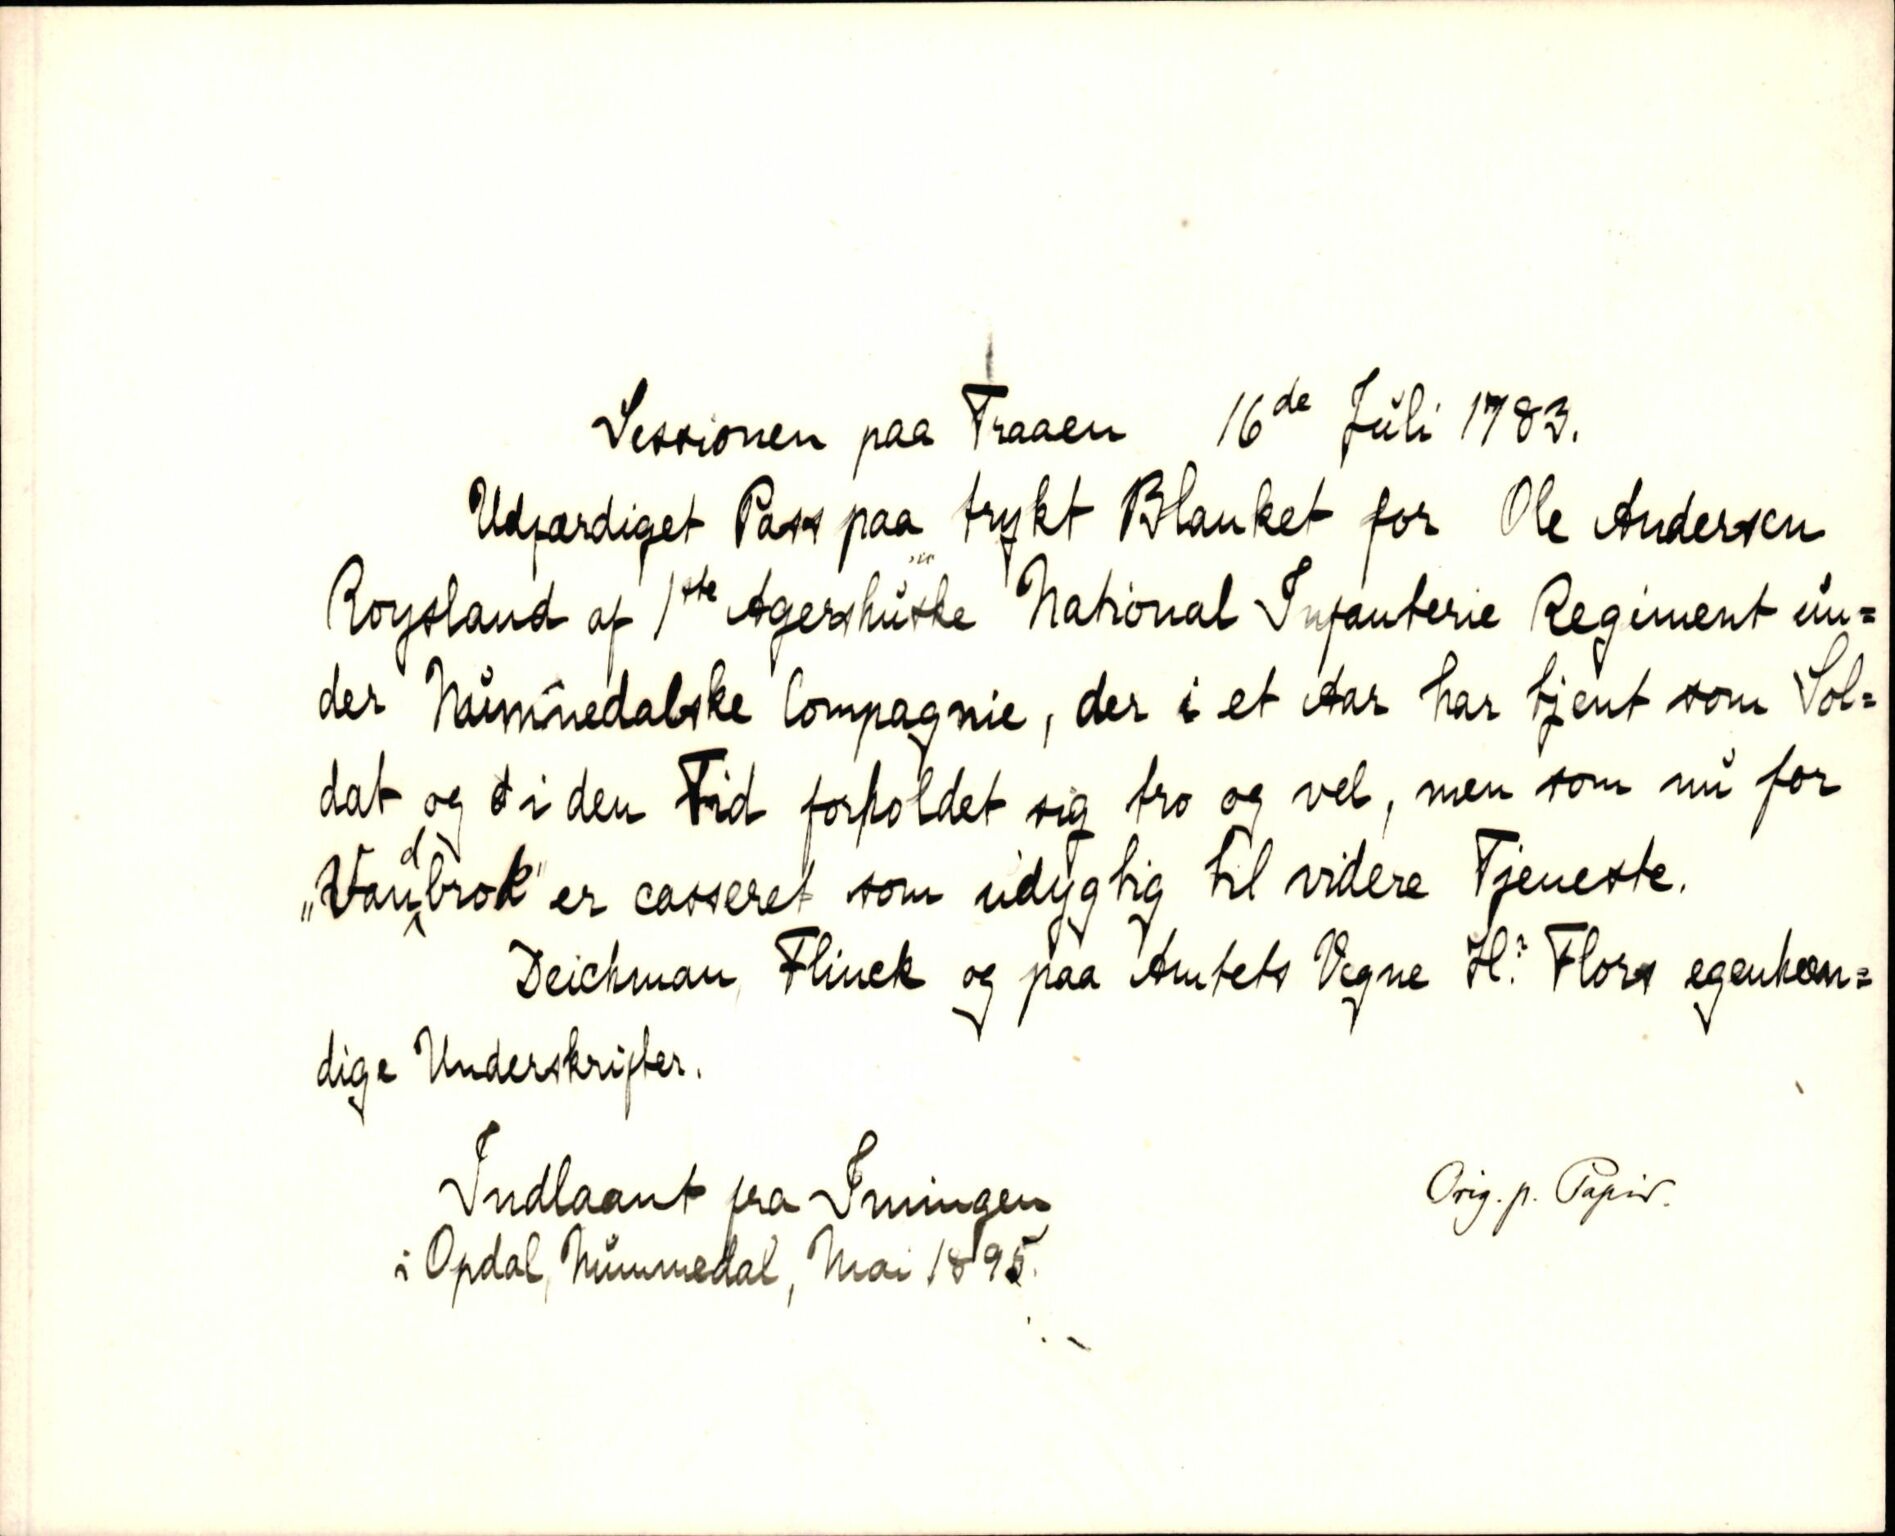 Sessionen paa Traaen 16de Juli 1783.
Udfærdiget Pass paa trykt Blanket for Ole Andersen
Roysland af 1ste Agershuske National Infanterie Regiment un=
der Nummedalske Compagnie, der i et Aar har tjent som Sol=
dat og i den Tid forholdet sig tro og vel, men som nu for
„Vandbrok" er casseret som udygtig til videre Tjeneste.
Deichman, Flinck og paa Amtets Vegne Hr. Flors egenhæn=
dige Underskrifter.
Indlaant fra Imingen
i Opdal, Nummedal, Mai 1895.
Orig. p. Papir.